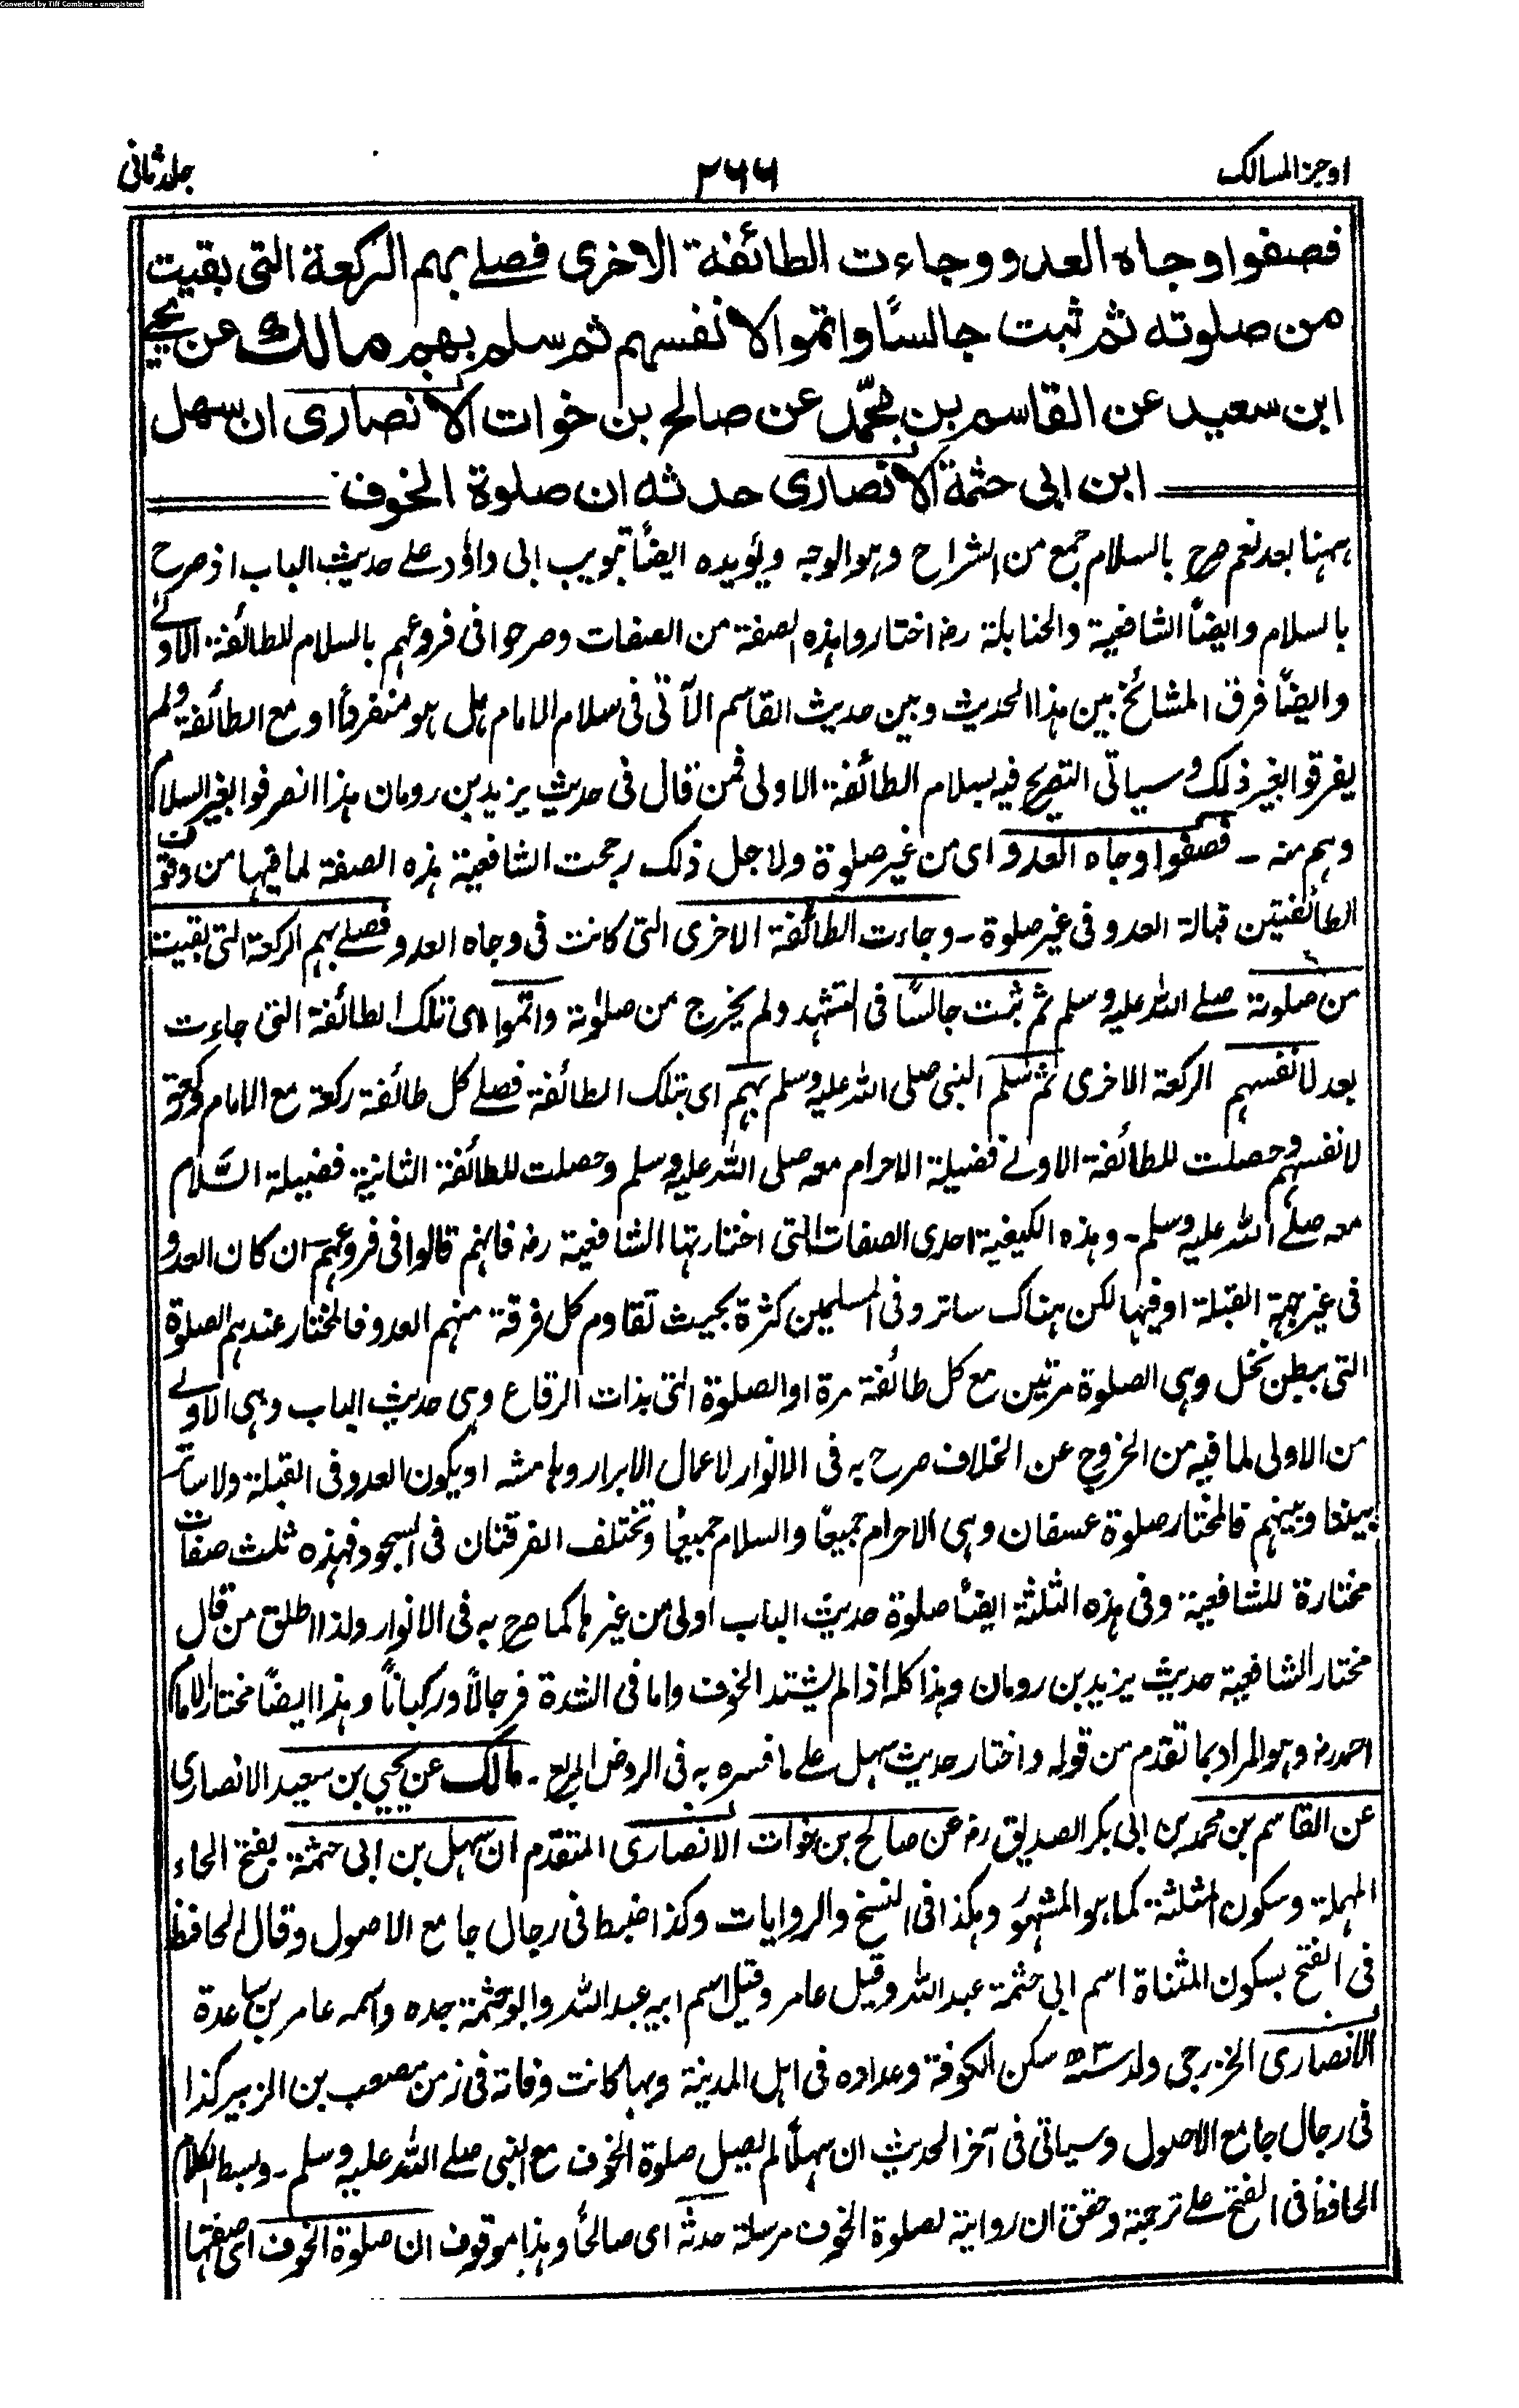 Converted by Tiff Combine - unregistered
اوجز المسالك
٢٦٦
جلد ثانی
فصفوا وجاه العدو وجاءت الطائفة الاخرى فصلے بهم الركعة التى بقيت
من صلوته ثم ثبت جالسًا واتموا لانفسهم ثم سلم بهم مالك عن يحيے
ابن سعيد عن القاسم بن محمّد عن صالح بن خوات الانصارى ان سهل
ابن ابى حثمة الانصارى حدثه ان صلوة الخوف
ههنا بعد نعم صرح بالسلام جمع من الشراح وهو الوجه ويؤيده ايضًا تبويب ابى داؤد علے حديث الباب اذ صرح
بالسلام وايضًا الشافعية والحنابلة رض اختاروا هذه الصفة من الصفات وصرحوا فى فروعهم بالسلام للطائفة الاولےٰ
وايضًا فرق المشائخ بين هذا الحديث وبين حديث القاسم الآتى فى سلام الامام هل هو منفردًا او مع الطائفة ولم
يفرقوا بغير ذلك وسياتى التصريح فيه بسلام الطائفة الاولى فمن قال فى حديث يزيد بن رومان هذا انصرفوا بغير السلام
وهم منه ـ فصفوا وجاه العدو اى من غير صلوة ولاجل ذلك رجحت الشافعية هذه الصفة لما فيها من وقوف
الطائفتين قبالة العدو فى غير صلوة ـ وجاءت الطائفة الاخرى التى كانت فى وجاه العدو فصلے بهم الركعة التى بقيت
من صلوته صلے الله عليه وسلم ثم ثبت جالسًا فى التشهد ولم يخرج من صلوته واتموا اى تلك الطائفة التى جاءت
بعد لانفسهم الركعة الاخرى ثم سلم النبى صلى الله عليه وسلم بهم اى بتلك الطائفة فصلے كل طائفة ركعة مع الامام وركعة
لانفسهم وحصلت للطائفة الاولے فضيلة الاحرام معه صلى الله عليه وسلم وحصلت للطائفة الثانية فضيلة السَّلام
معه صلے الله عليه وسلم ـ وهذه الكيفية احدى الصفات التى اختارتها الشافعية رض فانهم قالوا فى فروعهم ان كان العدو
فى غير جهة القبلة او فيها لكن هناك ساتر وفى المسلمين كثرة بحيث تقاوم كل فرقة منهم العدو فالمختار عندهم الصلوة
التى ببطن نخل وهى الصلوة مرتين مع كل طائفة مرة او الصلوة التى بذات الرقاع وهى حديث الباب وهى الاولے
من الاولى لما فيه من الخروج عن الخلاف صرح به فى الانوار لاعمال الابرار وهامشه او يكون العدو فى القبلة ولا ساتر
بيننا وبينهم فالمختار صلوة عسفان وهى الاحرام جميعًا والسلام جميعًا وتختلف الفرقتان فى السجود فهذه ثلث صفات
مختارة للشافعية وفى هذه الثلثة ايضًا صلوة حديث الباب اولى من غيرها كما صرح به فى الانوار ولذا اطلق من قال
مختار الشافعية حديث يزيد بن رومان وهذا كله اذا لم يشتد الخوف واما فى الشدة فرجالًا وركبانًا وهذا ايضًا مختار الامام
احمد رض وهو المراد بما تقدم من قوله واختار حديث سهل علے ما فسره به فى الروض المربع ـ مالك عن يحيى بن سعيد الانصارى
عن القاسم بن محمد بن ابى بكر الصديق رض عن صالح بن خوات الانصارى المتقدم ان سهل بن ابى حثمة بفتح الحاء
المهملة وسكون المثلثة كما هو المشهور وهكذا فى النسخ والروايات وكذا ضبط فى رجال جامع الاصول وقال الحافظ
فى الفتح بسكون المثناة اسم ابى حثمة عبد الله وقيل عامر وقيل اسم ابيه عبد الله وابو حثمة جده واسمه عامر بن ساعدة
الانصارى الخزرجى ولد سنة ٣ ه سكن الكوفة وعداده فى اهل المدينة وبها كانت وفاته فى زمن مصعب بن الزبير كذا
فى رجال جامع الاصول وسياتى فى آخر الحديث ان سهلًا لم يصل صلوة الخوف مع النبى صلے الله عليه وسلم ـ وبسط الكلام
الحافظ فى الفتح علے ترجمته وحقق ان روايته لصلوة الخوف مرسلة حدثه اى صالحًا وهذا موقوف ان صلوة الخوف اى صفتها